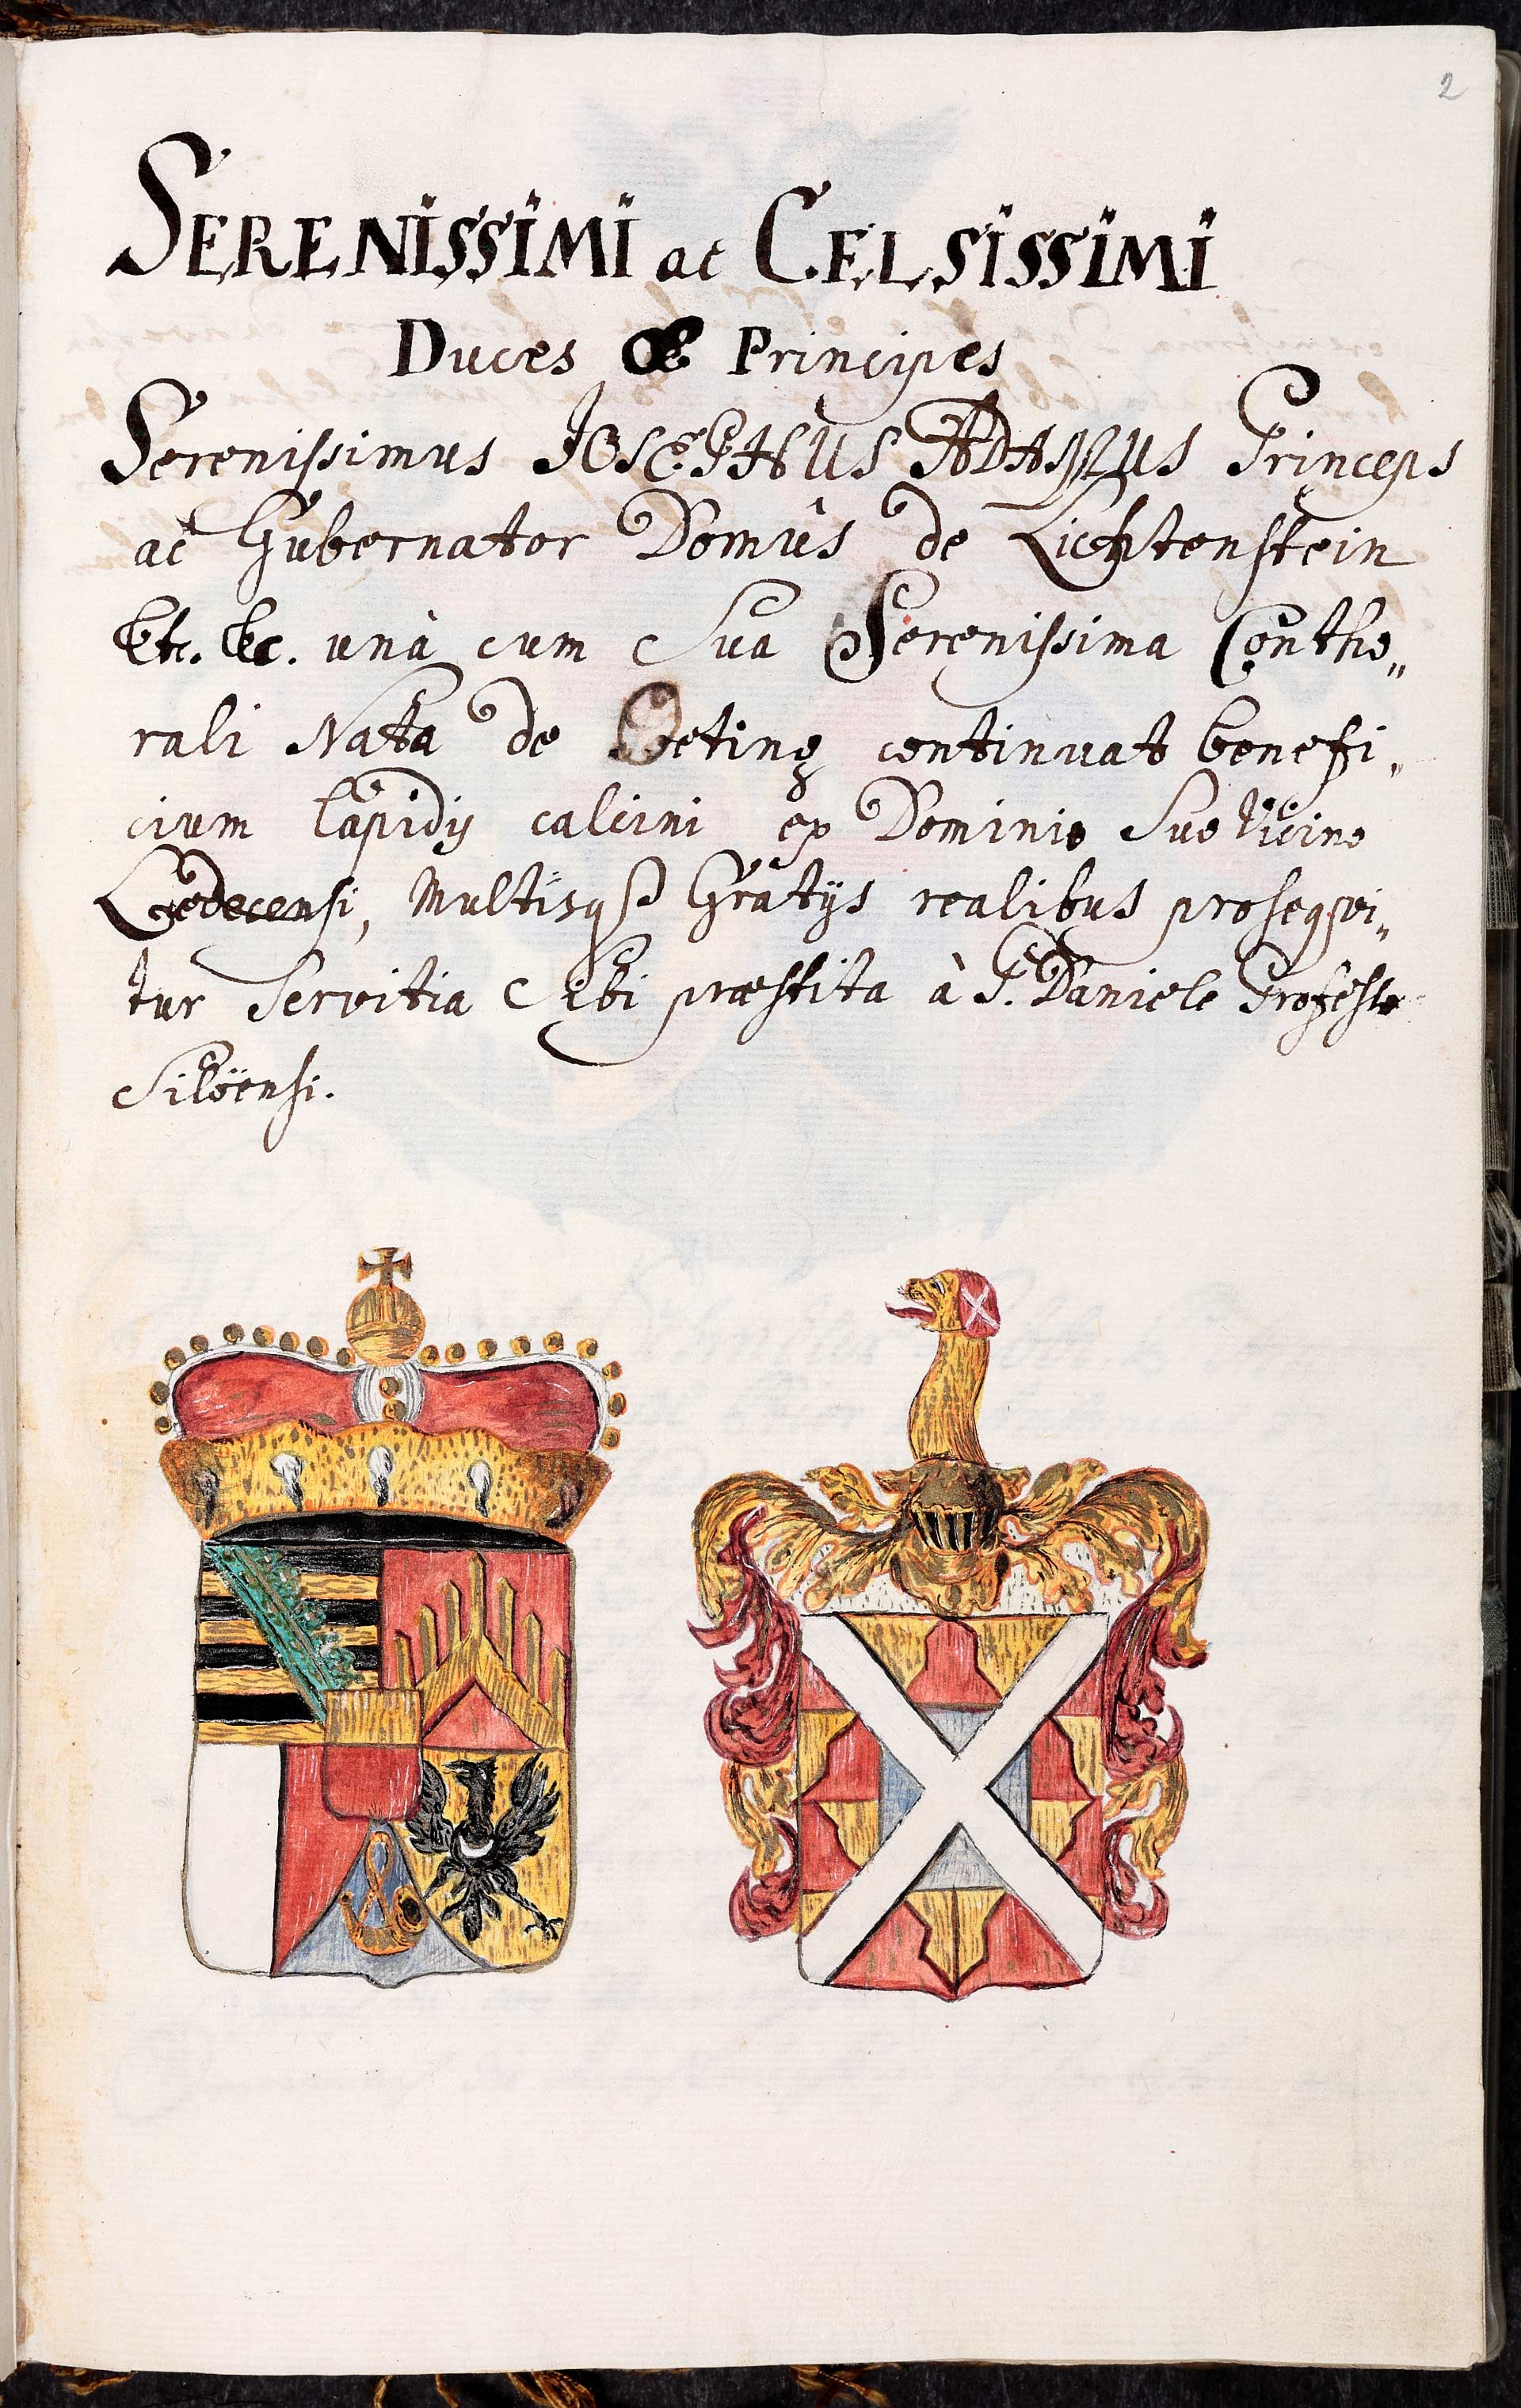 2
SERENISSIMI ac CELSISSIMI
Duces & Principes
Serenissimus IOSEPHUS ADAMUS Princeps
ac Gubernator Domûs de Lichtenstein
Etc. Etc. unà cum Sua Serenissima Contho„
rali Nata de Oeting continuat benefi„
cium lapidis calcini ex Dominio Suo Vicino
Multisq3 Gratijs realibus prosequi„
tur Servitia Sibi præstita à P. Daniele Professo
Silöensi.